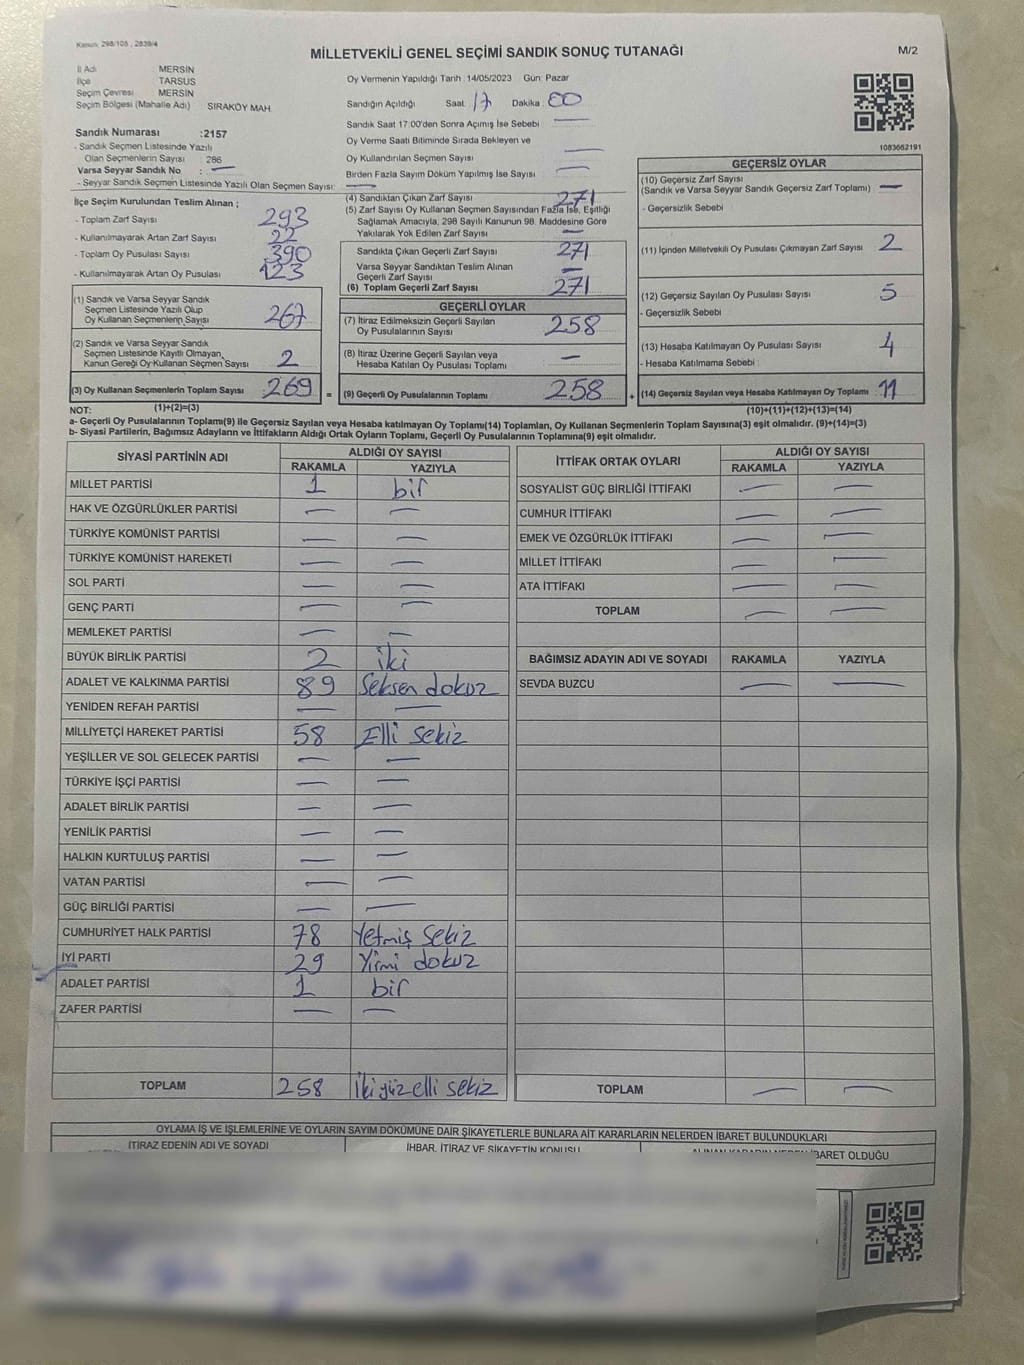 Kanun: 298/105 , 2839/4
MİLLETVEKİLİ GENEL SEÇİMİ SANDIK SONUÇ TUTANAĞI
M/2
İl Adı MERSİN
İlçe TARSUS
Seçim Çevresi MERSİN
Seçim Bölgesi (Mahalle Adı) SIRAKÖY MAH.
Oy Vermenin Yapıldığı Tarih :14/05/2023 Gün: Pazar
Sandığın Açıldığı Saat 17 Dakika : 00
Sandık Saat 17:00'den Sonra Açımış İse Sebebi : —
Oy Verme Saati Bitiminde Sırada Bekleyen ve
Oy Kullandırılan Seçmen Sayısı : —
Birden Fazla Sayım Döküm Yapılmış İse Sayısı : —
Sandık Numarası :2157
- Sandık Seçmen Listesinde Yazılı
Olan Seçmenlerin Sayısı : 286
Varsa Seyyar Sandık No : —
- Seyyar Sandık Seçmen Listesinde Yazılı Olan Seçmen Sayısı: —
İlçe Seçim Kurulundan Teslim Alınan ;
- Toplam Zarf Sayısı 293
- Kullanılmayarak Artan Zarf Sayısı 22
- Toplam Oy Pusulası Sayısı 390
- Kullanılmayarak Artan Oy Pusulası 123
(1) Sandık ve Varsa Seyyar Sandık
Seçmen Listesinde Yazılı Olup
Oy Kullanan Seçmenlerin Sayısı 267
(2) Sandık ve Varsa Seyyar Sandık
Seçmen Listesinde Kayıtlı Olmayan,
Kanun Gereği Oy Kullanan Seçmen Sayısı 2
(3) Oy Kullanan Seçmenlerin Toplam Sayısı 269 =
(4) Sandıktan Çıkan Zarf Sayısı 271
(5) Zarf Sayısı Oy Kullanan Seçmen Sayısından Fazla İse, Eşitliği
Sağlamak Amacıyla, 298 Sayılı Kanunun 98. Maddesine Göre
Yakılarak Yok Edilen Zarf Sayısı —
Sandıkta Çıkan Geçerli Zarf Sayısı 271
Varsa Seyyar Sandıktan Teslim Alınan
Geçerli Zarf Sayısı —
(6) Toplam Geçerli Zarf Sayısı 271
GEÇERLİ OYLAR
(7) İtiraz Edilmeksizin Geçerli Sayılan
Oy Pusulalarının Sayısı 258
(8) İtiraz Üzerine Geçerli Sayılan veya
Hesaba Katılan Oy Pusulası Toplamı —
(9) Geçerli Oy Pusulalarının Toplamı 258 +
1083662191
GEÇERSİZ OYLAR
(10) Geçersiz Zarf Sayısı
(Sandık ve Varsa Seyyar Sandık Geçersiz Zarf Toplamı) —
- Geçersizlik Sebebi
(11) İçinden Milletvekili Oy Pusulası Çıkmayan Zarf Sayısı 2
(12) Geçersiz Sayılan Oy Pusulası Sayısı 5
- Geçersizlik Sebebi
(13) Hesaba Katılmayan Oy Pusulası Sayısı 4
- Hesaba Katılmama Sebebi
(14) Geçersiz Sayılan veya Hesaba Katılmayan Oy Toplamı 11
NOT: (1)+(2)=(3) (10)+(11)+(12)+(13)=(14)
a- Geçerli Oy Pusulalarının Toplamı(9) ile Geçersiz Sayılan veya Hesaba katılmayan Oy Toplamı(14) Toplamları, Oy Kullanan Seçmenlerin Toplam Sayısına(3) eşit olmalıdır. (9)+(14)=(3)
b- Siyasi Partilerin, Bağımsız Adayların ve İttifakların Aldığı Ortak Oyların Toplamı, Geçerli Oy Pusulalarının Toplamına(9) eşit olmalıdır.
SİYASİ PARTİNİN ADI ALDIĞI OY SAYISI
RAKAMLA YAZIYLA
MİLLET PARTİSİ 1 bir
HAK VE ÖZGÜRLÜKLER PARTİSİ — —
TÜRKİYE KOMÜNİST PARTİSİ — —
TÜRKİYE KOMÜNİST HAREKETİ — —
SOL PARTİ — —
GENÇ PARTİ — —
MEMLEKET PARTİSİ — —
BÜYÜK BİRLİK PARTİSİ 2 iki
ADALET VE KALKINMA PARTİSİ 89 Seksen dokuz
YENİDEN REFAH PARTİSİ — —
MİLLİYETÇİ HAREKET PARTİSİ 58 Elli sekiz
YEŞİLLER VE SOL GELECEK PARTİSİ — —
TÜRKİYE İŞÇİ PARTİSİ — —
ADALET BİRLİK PARTİSİ — —
YENİLİK PARTİSİ — —
HALKIN KURTULUŞ PARTİSİ — —
VATAN PARTİSİ — —
GÜÇ BİRLİĞİ PARTİSİ — —
CUMHURİYET HALK PARTİSİ 78 Yetmiş sekiz
İYİ PARTİ 29 Yirmi dokuz
ADALET PARTİSİ 1 bir
ZAFER PARTİSİ — —
TOPLAM 258 İki yüz elli sekiz
İTTİFAK ORTAK OYLARI ALDIĞI OY SAYISI
RAKAMLA YAZIYLA
SOSYALİST GÜÇ BİRLİĞİ İTTİFAKI — —
CUMHUR İTTİFAKI — —
EMEK VE ÖZGÜRLÜK İTTİFAKI — —
MİLLET İTTİFAKI — —
ATA İTTİFAKI — —
TOPLAM — —
BAĞIMSIZ ADAYIN ADI VE SOYADI RAKAMLA YAZIYLA
SEVDA BUZCU — —
TOPLAM — —
OYLAMA İŞ VE İŞLEMLERİNE VE OYLARIN SAYIM DÖKÜMÜNE DAİR ŞİKAYETLERLE BUNLARA AİT KARARLARIN NELERDEN İBARET BULUNDUKLARI
İTİRAZ EDENİN ADI VE SOYADI İHBAR, İTİRAZ VE ŞİKAYETİN KONUSU ALINAN KARARIN NEDEN İBARET OLDUĞU